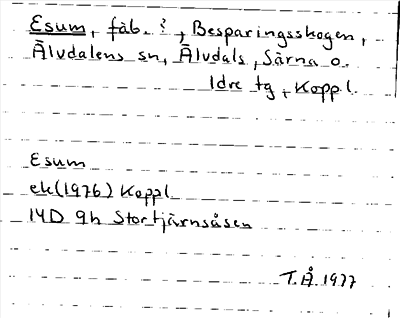 Esum, fäb. ?, Besparingsskogen,
Älvdalens sn, Älvdals, Särna o.
Idre tg, Koppl.
Esum
ek(1976) Koppl
14D 9h Stortjärnsåsen
T.Å. 1977